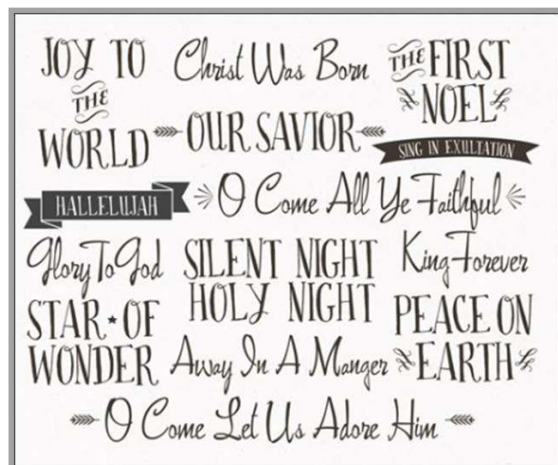 JOY TO
THE
WORLD
Christ Was Born
THE FIRST
NOEL
OUR SAVIOR
SING IN EXULTATION
HALLELUJAH
O Come All Ye Faithful
Glory To God
SILENT NIGHT
HOLY NIGHT
King Forever
STAR OF
WONDER
Away In A Manger
PEACE ON
EARTH
O Come Let Us Adore Him